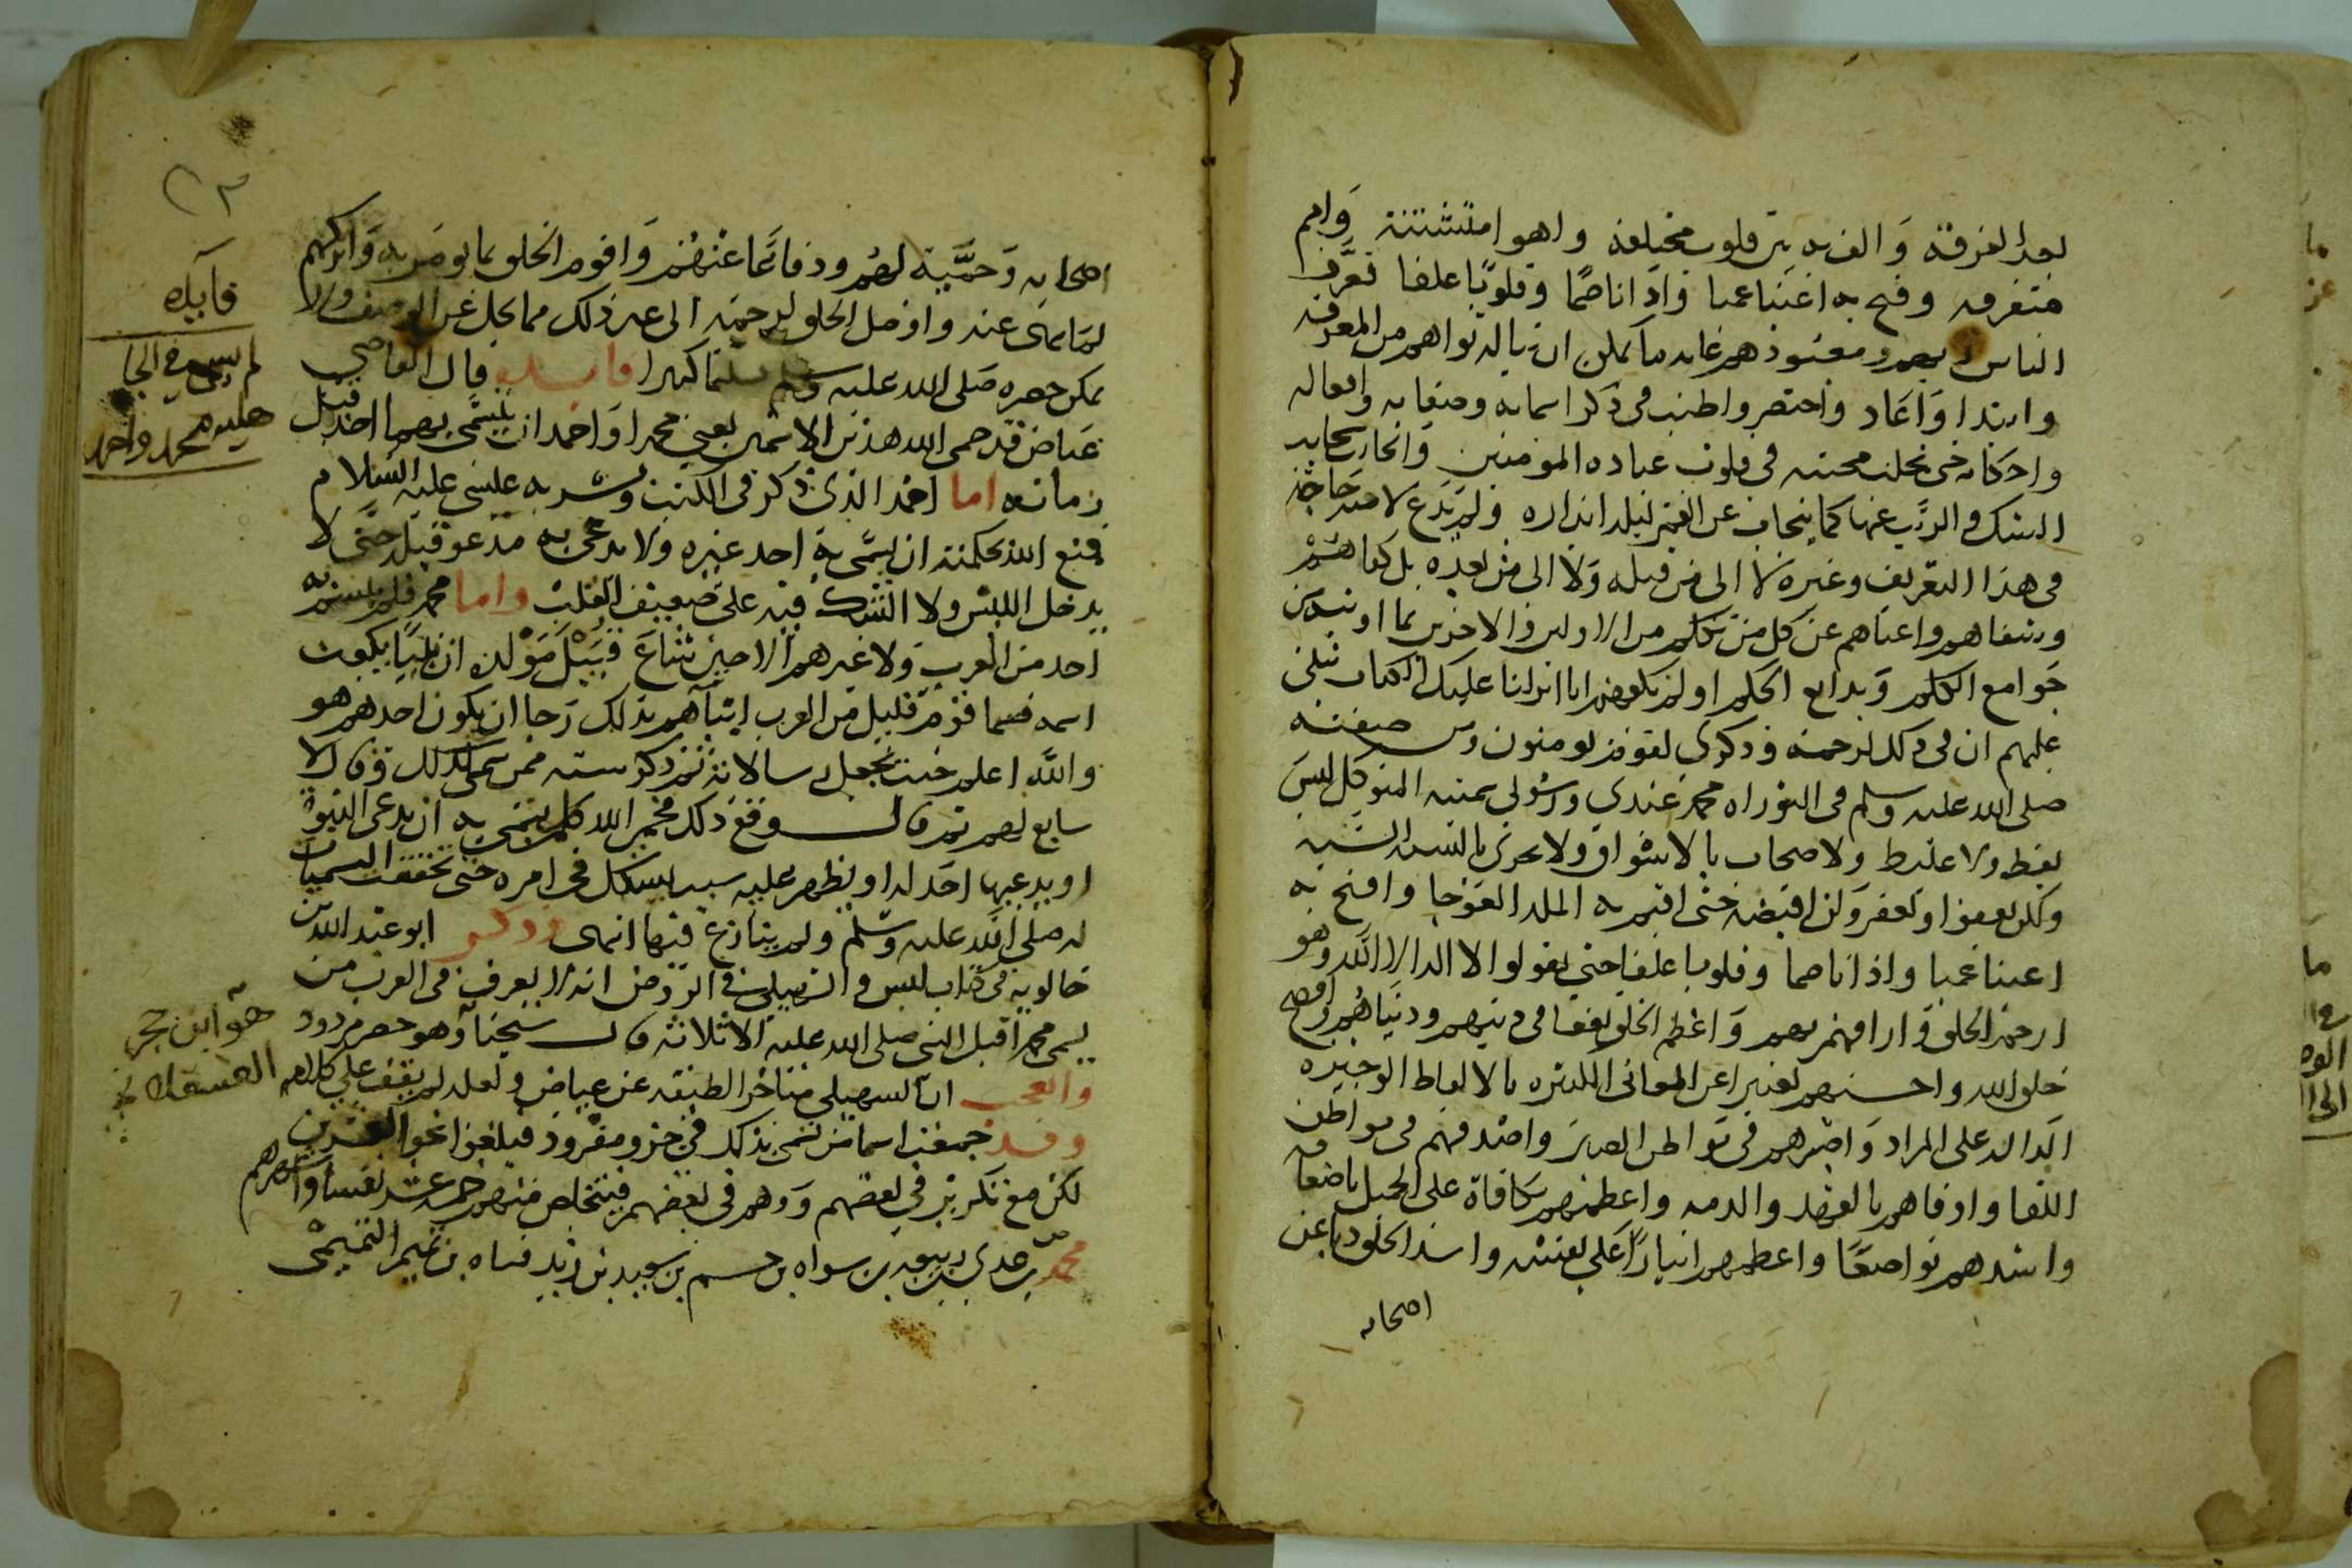 بعد الفرقة والف به بين قلوب مختلفة واهوا متشتتة وامم
متفرقة وفتح به اعينا عميا واذانا صما وقلوبا غلفا فعرف
الناس ربهم ومعبودهم غاية ما يمكن ان يناله قواهم من المعرفة
وابتدا واعاد واختصر واطنب في ذكر اسمائه وصفاته وافعاله
واحكامه حتى تجلت معرفته في قلوب عباده المومنين وانجابت سحايب
الشك والريب عنها كما ينجاب عن القمر ليلة ابداره ولم يدع لامته حاجة
في هذا التعريف وغيره لا الى من قبله ولا الى من بعده بل كفاهم
وشفاهم واغناهم عن كل من تكلم من الاولين والاخرين بما اوتيه من
جوامع الكلم وبدايع الحكم اولم يكفهم انا انزلنا عليك الكتاب يتلى
عليهم ان في ذلك لرحمة وذكرى لقوم يومنون ومن صفته
صلى الله عليه وسلم في التوراة محمد عبدي ورسولي سميته المتوكل ليس
بفظ ولا غليظ ولا صخاب بالاسواق ولا يجزي بالسيئة السيئة
ولكن يعفوا ويغفر ولن اقبضه حتى اقيم به الملة العوجا وافتح به
اعينا عميا واذانا صما وقلوبا غلفا حتى يقولوا لا اله الا الله وهو
ارحم الخلق وارافهم بهم واعظم الخلق نفعا في دينهم ودنياهم وافصح
خلق الله واحسنهم تعبيرا عن المعاني الكثيرة بالالفاظ الوجيزة
الدالة على المراد واصبرهم في مواطن الصبر واصدقهم في مواطن
اللقا واوفاهم بالعهد والذمة واعظمهم مكافاة على الجميل باضعافه
واشدهم تواضعا واعظمهم ايثارا على نفسه واشد الخلق ذبا عن
اصحابه
اصحابه وحمية لهم ودفاعا عنهم واقوم الخلق بما يومر به واتركهم
لما ينهى عنه واوصل الخلق لرحمه الى غير ذلك مما يجل عن الوصف ولا
يمكن حصره صلى الله عليه وسلم تسليما كثيرا فايدة قال القاضي
عياض قد حمى الله هذين الاسمين يعني محمدا واحمد ان يتسمى بهما احد قبل
زمانه اما احمد الذي ذكر في الكتب وبشر به عيسى عليه السلام
فمنع الله بحكمته ان يسمى به احد غيره ولا يدعى به مدعو قبله حتى لا
يدخل اللبس ولا الشك فيه على ضعيف القلب واما محمد فلم يتسم به
احد من العرب ولا غيرهم الا حين شاع قبيل مولده ان نبيا يبعث
اسمه فسما قوم قليل من العرب ابناهم بذلك رجا ان يكون احدهم هو
والله اعلم حيث يجعل رسالاته ثم ذكر ستة ممن سمي بذلك وقال لا
سابع لهم ثم قال ومع ذلك فحمى الله كل من تسمى به ان يدعى النبوة
او يدعيها احد له او يظهر عليه سبب يشكل في امره حتى تحققت السمتان
له صلى الله عليه وسلم ولم ينازع فيها انتهى وذكر ابو عبد الله بن
خالويه في كتاب ليس والسهيلي في الروض انه لا يعرف في العرب من
يسمى محمدا قبل النبي صلى الله عليه الا ثلاثة قال شيخنا وهو حصر مردود
والعجب ان السهيلي متاخر الطبقة عن عياض ولعله لم يقف على كلامه
وقد جمعت اسما من تسمى بذلك في جزو مفرد فبلغوا نحو العشرين
لكن مع تكرير في بعضهم ووهم في بعضهم فيتخلص منهم خمسة عشر نفسا واشهرهم
محمد بن عدي بن ربيعة بن سواة بن جشم بن سعد بن زيد مناة بن تميم التميمي
فايده
لم يسم في الجا
هلية محمد واحمد
هو ابن حجر
العسقلاني